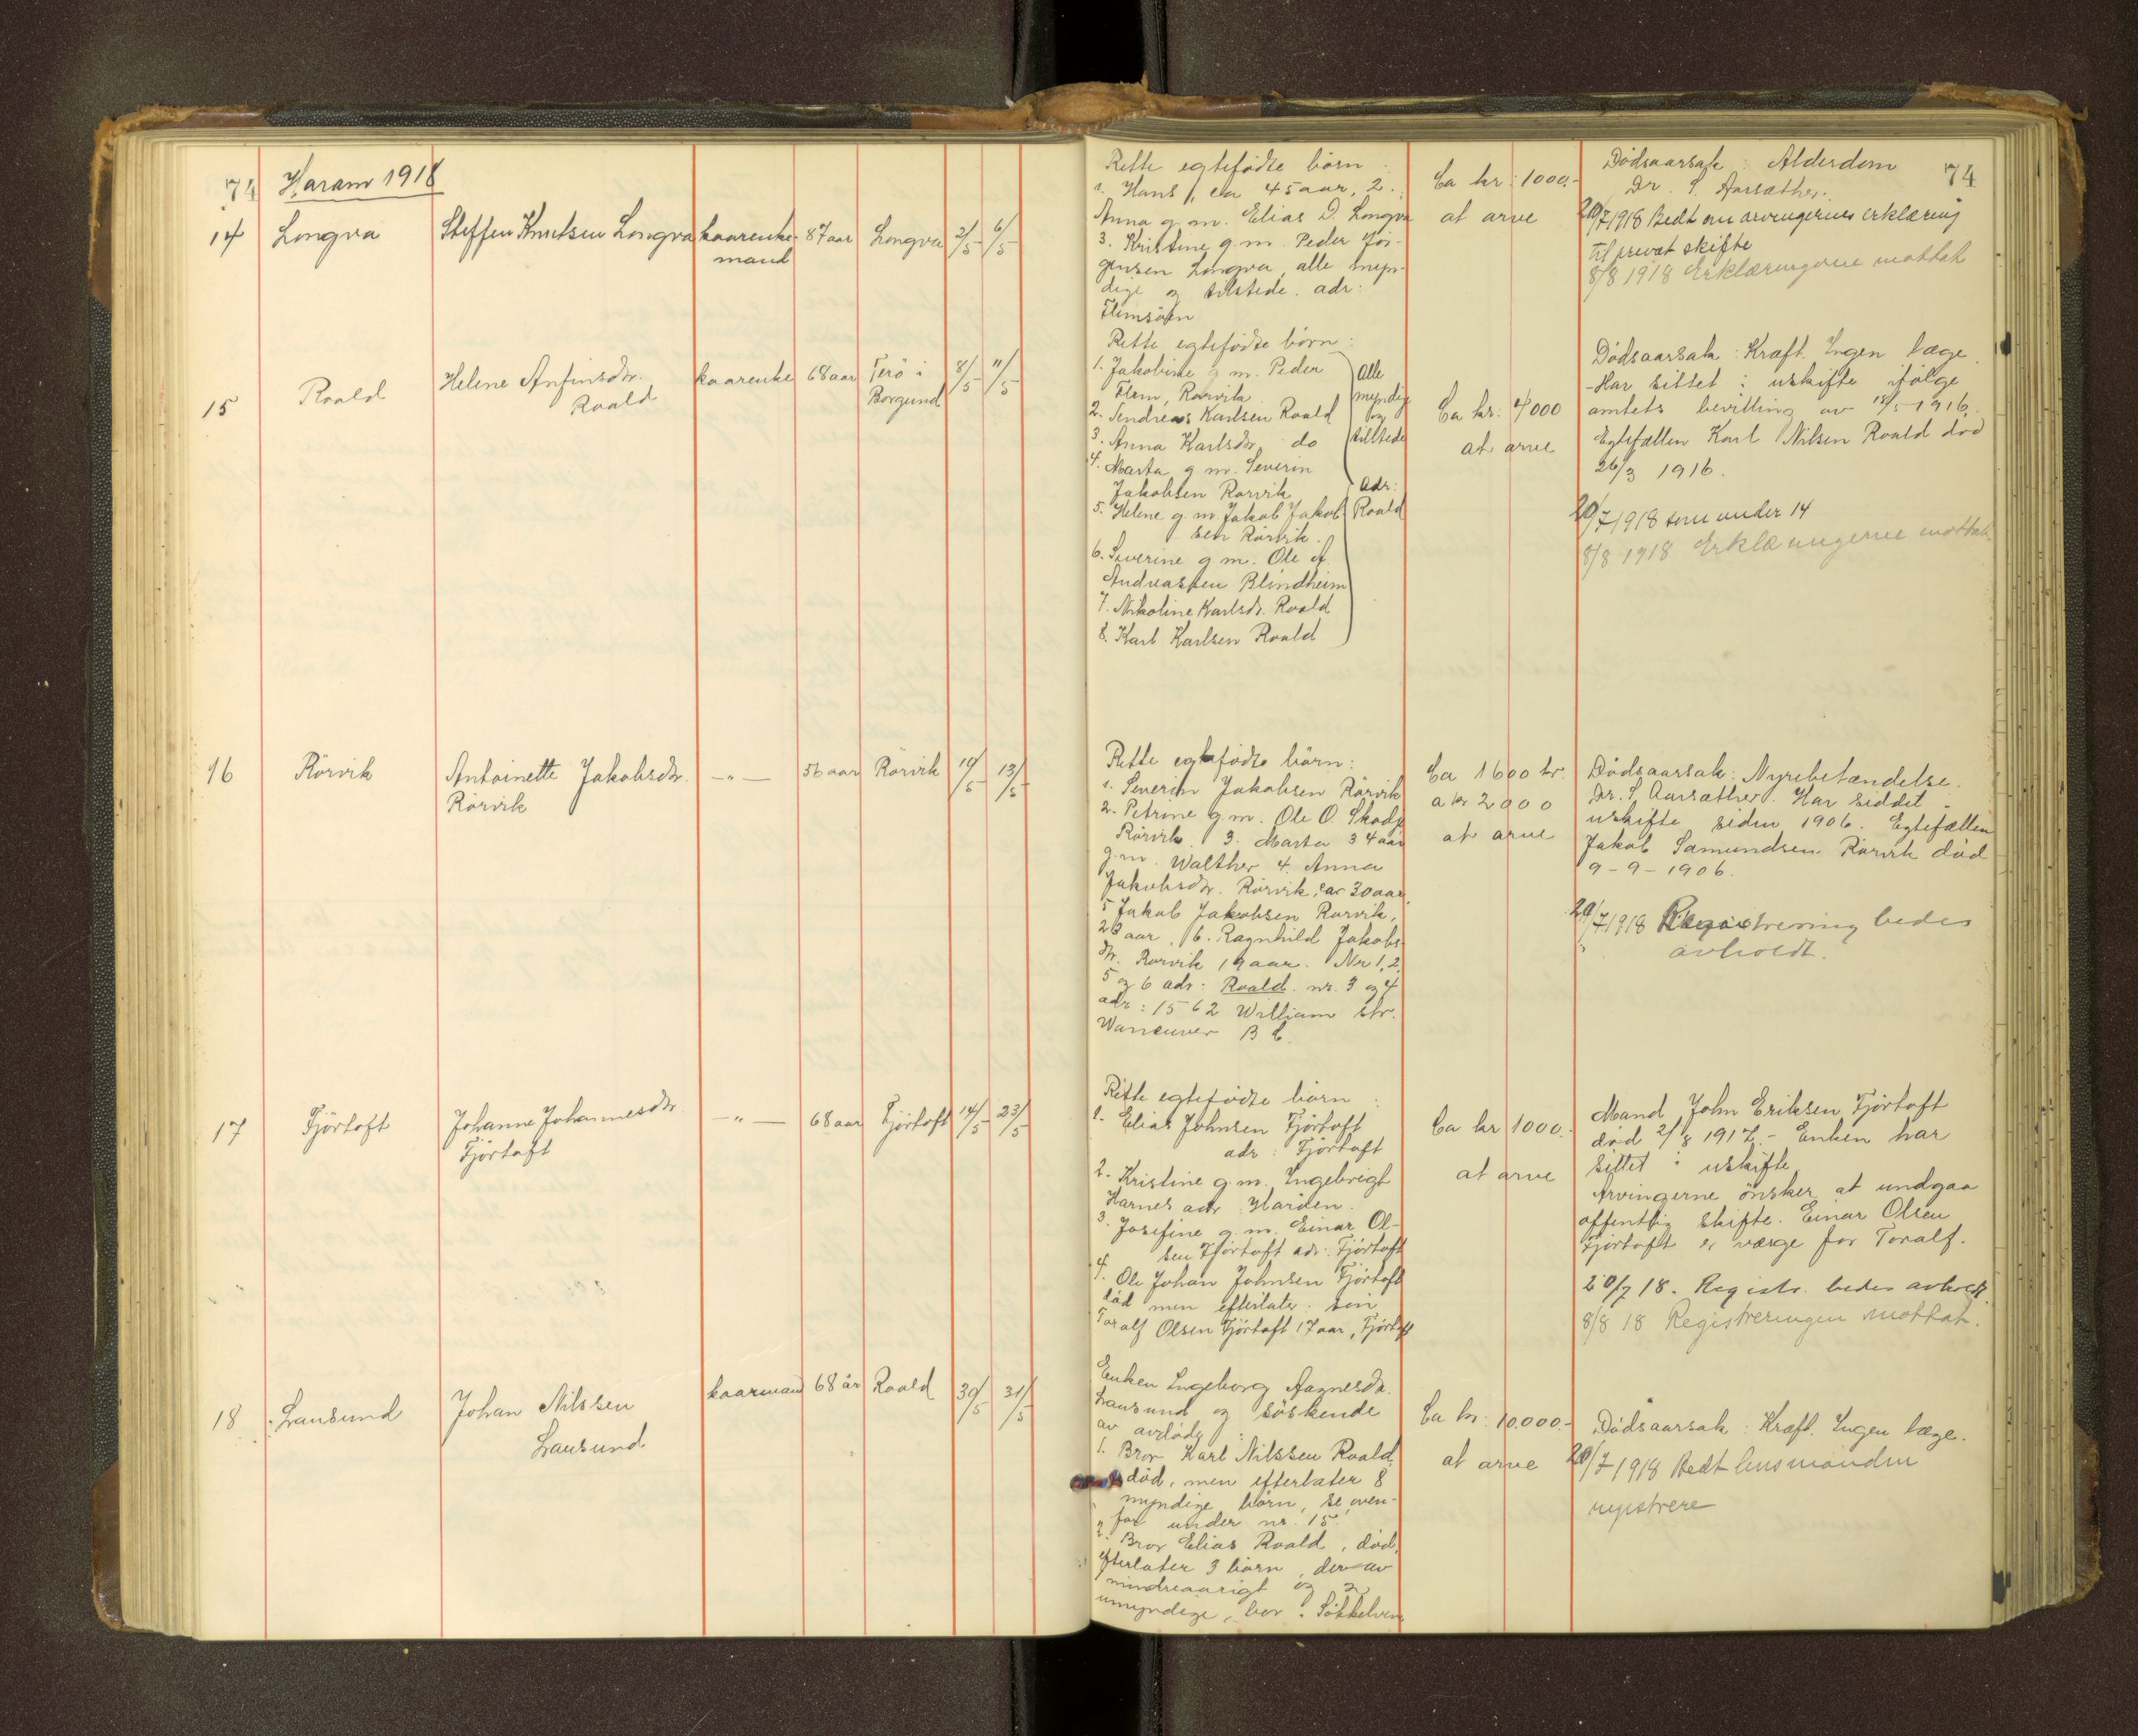 74 Haram 1918
14 Longva Steffen Knutsen Longva kaarenke- 87 aar Longva 2/5 6/5
mand
15 Roald Helene Anfinsdr. kaarenke 68 aar Terö i 8/5 11/5
Roald Borgund
16 Rörvik Antoinette Jakobsdr. —"— 56 aar Rörvik 10/5 13/5
Rörvik
17 Fjörtoft Johanne Johannesdr. —"— 68 aar Fjörtoft 14/5 23/5
Fjörtoft
18 Lausund Johan Nilssen kaarmand 68 år Roald 30/5 31/5
Lausund
Rette egtefödte börn
1. Hans, ca 45 aar, 2.
Anna g. m. Elias D. Longva
3. Kristine g. m. Peder Jör-
gensen Longva, alle myn-
dige og tilstede. adr:
Flemsöen
Ca kr: 1000.-
at arve
Dödsaarsak: Alderdom 74
Dr. S. Aarsæther.
20/7 1918 Bedt om arvingernes erklæring
til privat skifte
8/8 1918 Erklæringerne mottat
Rette egtefödte börn:
1. Jakobine g. m. Peder
Flem, Rörvik
2. Andreas Karlsen Roald
3. Anna Karlsdr. do
4. Marta g. m. Severin
Jakobsen Rörvik
5. Helene g. m. Jakob Jakob-
sen Rörvik.
6. Severine g. m. Ole A
Andreassen Blindheim
7. Nikoline Karlsdr. Roald
8. Karl Karlsen Roald
Alle
myndig
og
tilstede
Adr:
Roald
Ca kr: 4000
at arve
Dödsaarsak: Kræft. Ingen læge.
Har sittet i uskifte ifölge
amtets bevilling av 18/5 1916.
Egtefællen Karl Nilsen Roald död
26/3 1916.
20/7 1918 som under 14
8/8 1918 Erklæringerne mottat.
Rette egtefödte börn:
1. Severin Jakobsen Rörvik
2. Petrine g. m. Ole O. Skodje
Rörvik. 3. Marta 34 aar
g. m. Walther 4. Anna
Jakobsdr. Rörvik, ca 30 aar,
5 Jakob Jakobsen Rörvik,
23 aar, 6. Ragnhild Jakobs-
dr. Rörvik 19 aar. Nr 1, 2,
5 og 6 adr: Roald. nr. 3 og 4
adr: 1562 William str.
Wancuver B C.
Ca 1600 kr.
a kr 2000
at arve
Dödsaarsak: Nyrebetændelse.
Dr. S. Aarsæther. Har siddet i
uskifte siden 1906. Egtefællen
Jakob Samundsen Rörvik död
9-9-1906.
20/7 1918 Registrering bedes
avholdt.
Rette egtefödte börn:
1. Elias Johnsen Fjörtoft
adr: Fjörtoft
2. Kristine g. m. Ingebrigt
Harnes adr Haröen.
3. Josefine g. m. Einar Ol-
sen Fjörtoft adr: Fjörtoft
4. Ole Johan Johnsen Fjörtoft
död men efterlater: sön
Toralf Olsen Fjörtoft 17 aar, Fjörtoft
Ca kr 1000.-
at arve
Mand John Eriksen Fjörtoft
död 2/8 1917.- Enken har
sittet i uskifte
Arvingerne önsker at undgaa
offentlig skifte. Einar Olsen
Fjörtoft er værge for Toralf.
20/7 18. Registr. bedes avholdt.
8/8 18 Registreringen mottat.
Enken Ingeborg Aagnesdr.
Lausund og söskende
av avdöde:
1. Bror Karl Nilssen Roald,
död, men efterlater 8
myndige börn, se oven-
for under nr. 15.
2. Bror Elias Roald, död,
efterlater 3 börn, der av
mindreaarigt og 2
umyndige, bor i Sökkelven
Ca kr: 10.000.-
at arve
Dödsaarsak: Kræft. Ingen læge.
20/7 1918 Bedt lensmanden
registrere